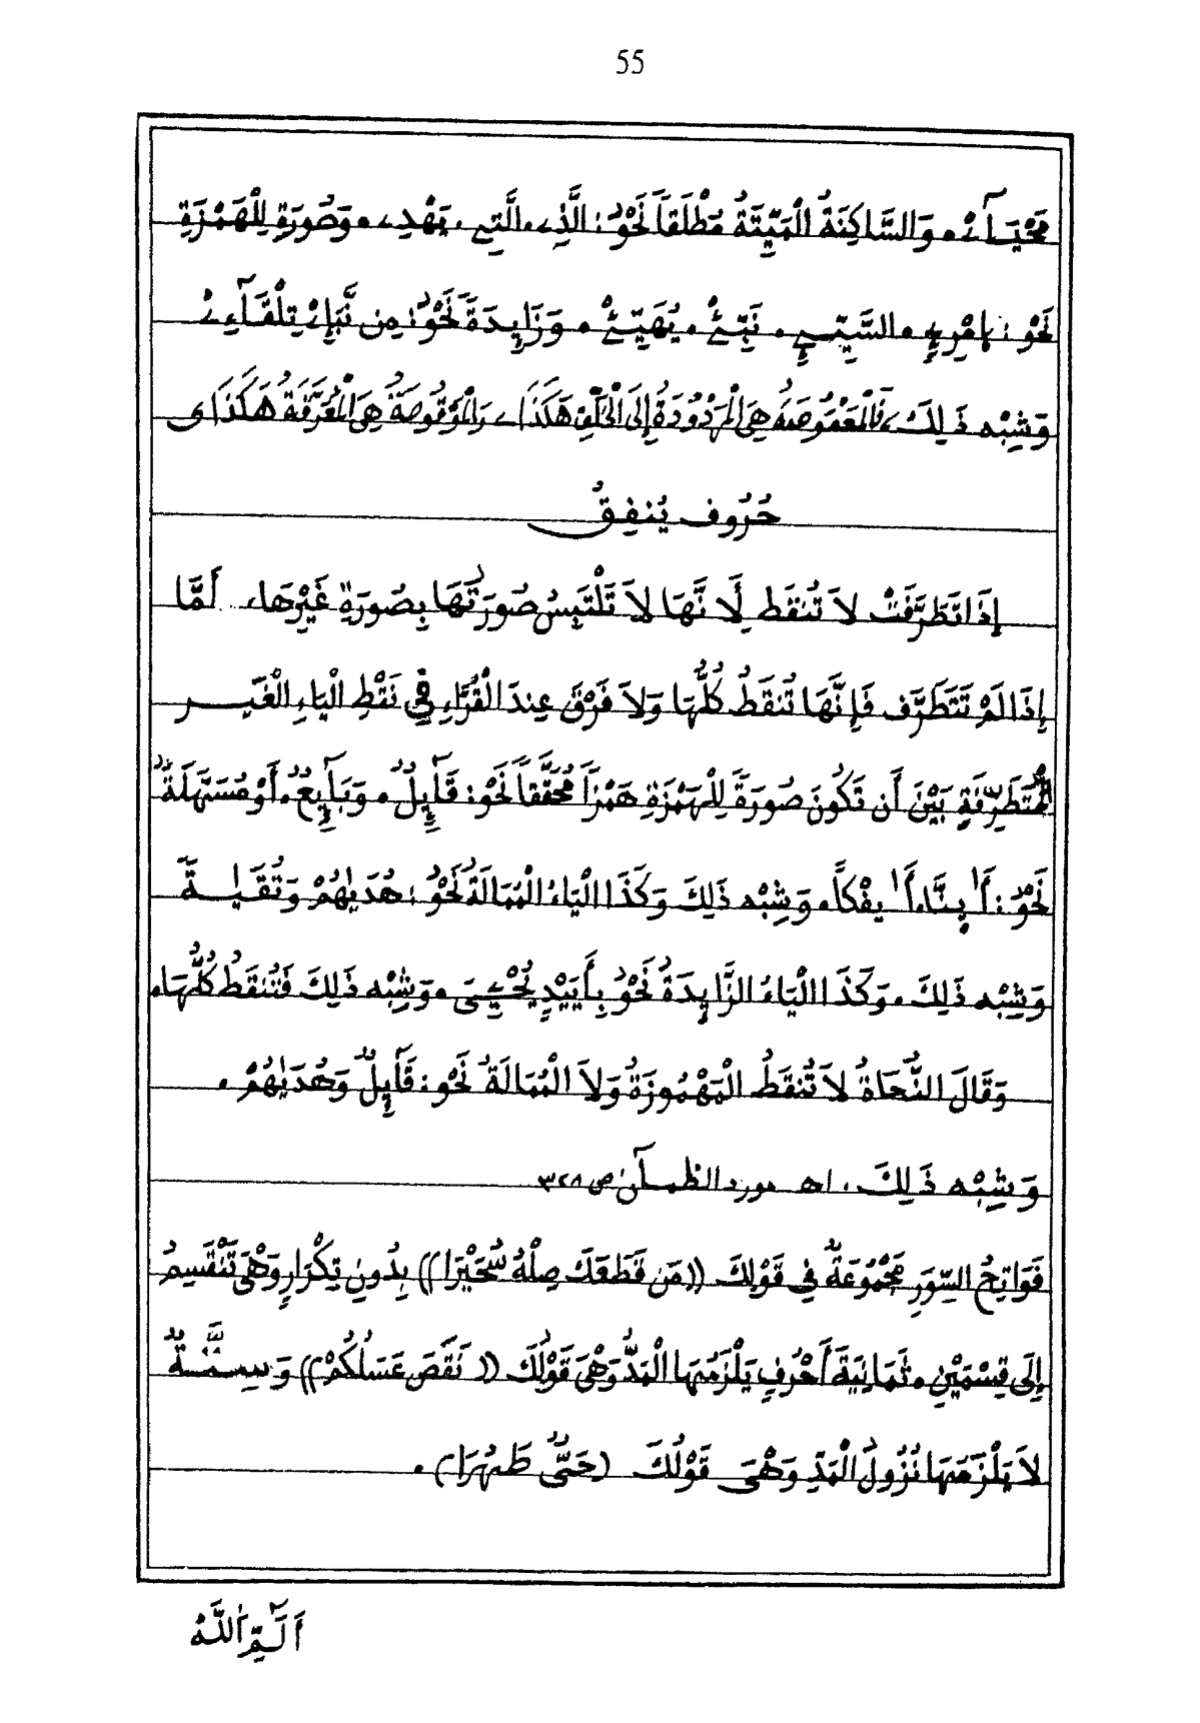 55
مَحْيَآءِ، وَالسَّاكِنَةُ الْمَيِّتَةُ مُطْلَقاً نَحْوُ: الَّذِے، الَّتِے، يَهْدِے، وَصُورَةٍ لِلْهَمْزَةِ
نَحْوُ: امْرِےٍ، السَّيِّےِٕ، نَبِّئْ، يُهَيِّئْ، وَزَايِدَةً نَحْوُ: مِن نَّبَإِےْ تِلْقَآءِےْ
وَشِبْهِ ذَلِكَ، فَالْمَعْقُوصَةُ هِىَ الْمَرْدُودَةُ إِلَى الْخَلْفِ هَكَذَا ے وَالْمَوْقُوصَةُ هِىَ الْمُعَرَّقَةُ هَكَذَا ى
حُرُوف يُنفِقُ
إِذَا تَطَرَّفَتْ لاَ تُنقَط لِأَنَّهَا لاَ تَلْتَبِسُ صُورَتُهَا بِصُورَةِ غَيْرِهَا، أَمَّا
إِذَا لَمْ تَتَطَرَّف فَإِنَّهَا تُنقَطُ كُلُّهَا وَلاَ فَرْقَ عِندَ الْقُرَّاءِ فِي نَقْطِ الْيَاءِ الْغَيْر
الْمُتَطَرِّفَةِ بَيْنَ أَن تَكُونَ صُورَةً لِلْهَمْزَةِ هَمْزاً مُحَقَّقاً نَحْوُ: قَآئِلٌ، وَبَآئِعٌ، أَوْ مُسَهَّلَةً
نَحْوُ: أَٰىٕنَّا، أَٰىٕفْكاً، وَشِبْهِ ذَلِكَ وَكَذَا الْيَاءُ الْمُمَالَةُ نَحْوُ: هُدَيٰهُمْ وَتُقَيٰةً
وَشِبْهِ ذَلِكَ، وَكَذَا الْيَاءُ الزَّايِدَةُ نَحْوُ بِأَيَيْدٍ يُحْيِيَ، وَشِبْهِ ذَلِكَ فَتُنقَطُ كُلُّهَا،
وَقَالَ النُّحَاةُ لاَ تُنقَطُ الْمَهْمُوزَةُ وَلاَ الْمُمَالَةُ نَحْوُ: قَآئِلٌ وَهُدَيٰهُمْ،
وَشِبْهِ ذَلِكَ. اهـ مورد الظمآن ص ٣٢٨
فَوَاتِحُ السِّوَرِ مَجْمُوعَةٌ فِي قَوْلِكَ ((مَن قَطَعَكَ صِلْهُ سُحَيْرَا)) بِدُونِ تِكْرَارٍ وَهْىَ تَنْقَسِمُ
إِلَى قِسْمَيْنِ، ثَمَانِيَةَ أَحْرُفٍ يَلْزَمُهَا الْمَدُّ وَهْىَ قَوْلُكَ ((نَقَصَ عَسَلُكُمْ)) وَسِتَّةٌ
لاَ يَلْزَمُهَا نُزُولُ الْمَدِّ وَهْىَ قَوْلُكَ (حَىٌّ طَهُرَا).
أَلَٓمِّٓ اَللَّهُ